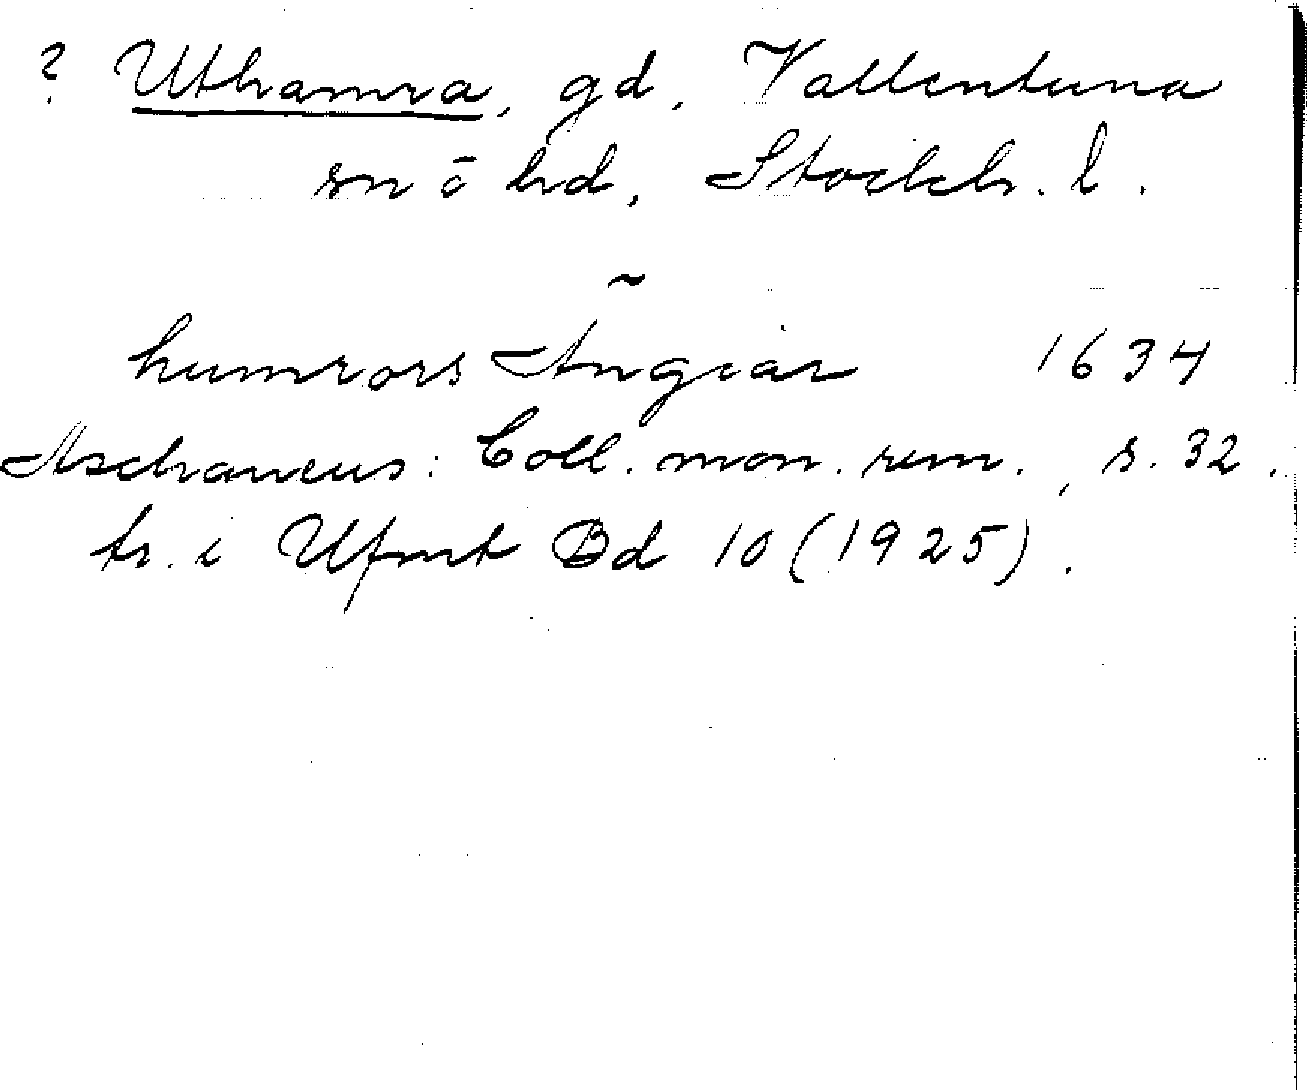 ? Uthamra, gd, Vallentuna
sn o hd, Stockh. l.
~
humrors Ängiar 1634
Aschaneus: Coll. mon. run., s. 32.
tr. i Ufmt Bd 10 (1925).